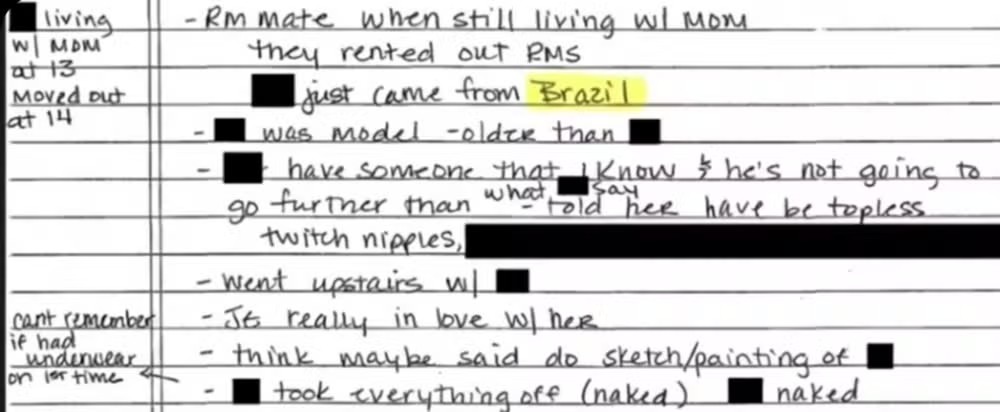 living
w/ MOM
at 13
Moved out
at 14
- Rm mate when still living w/ Mom
they rented out RMS
just came from Brazil
- was model - older than
- have someone that I Know & he's not going to
go further than what say - told her have be topless
twitch nipples,
- Went upstairs w/
- JE really in love w/ her
- think maybe said do sketch/painting of
- took everything off (naked) naked
cant remember
if had
underwear
on 1st time